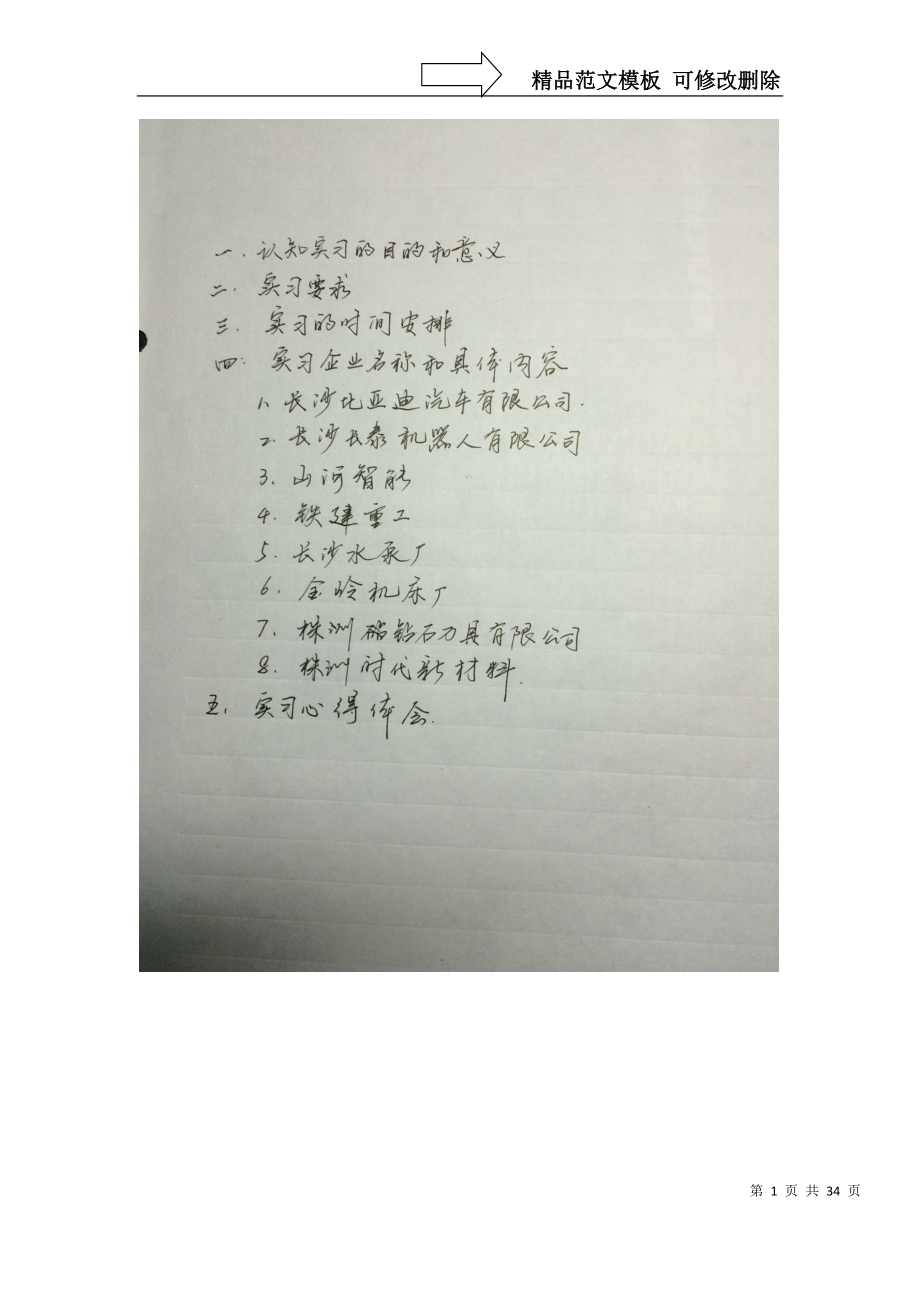 精品范文模板 可修改删除
一、认知实习的目的和意义
二. 实习要求
三. 实习的时间安排
四. 实习企业名称和具体内容
1、长沙比亚迪汽车有限公司.
2. 长沙长泰机器人有限公司
3、山河智能
4. 铁建重工
5. 长沙水泵厂
6. 金岭机床厂
7、株洲 钻石刀具有限公司
8. 株洲时代新材料.
五、实习心得体会.
第 1 页 共 34 页